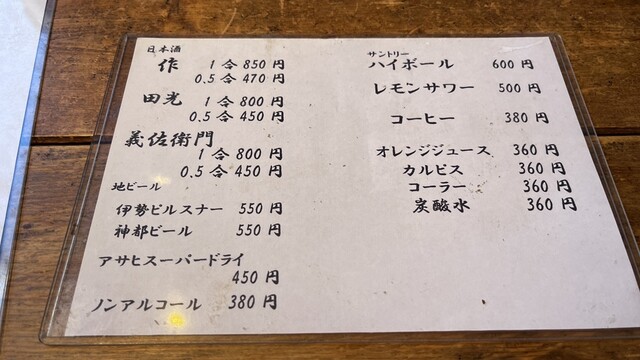 日本酒
作 1合 850円
0.5合 470円
田光 1合 800円
0.5合 450円
義佐衛門
1合 800円
0.5合 450円
地ビール
伊勢ピルスナー 550円
神都ビール 550円
アサヒスーパードライ
450円
ノンアルコール 380円
サントリー
ハイボール 600円
レモンサワー 500円
コーヒー 380円
オレンジジュース 360円
カルピス 360円
コーラー 360円
炭酸水 360円